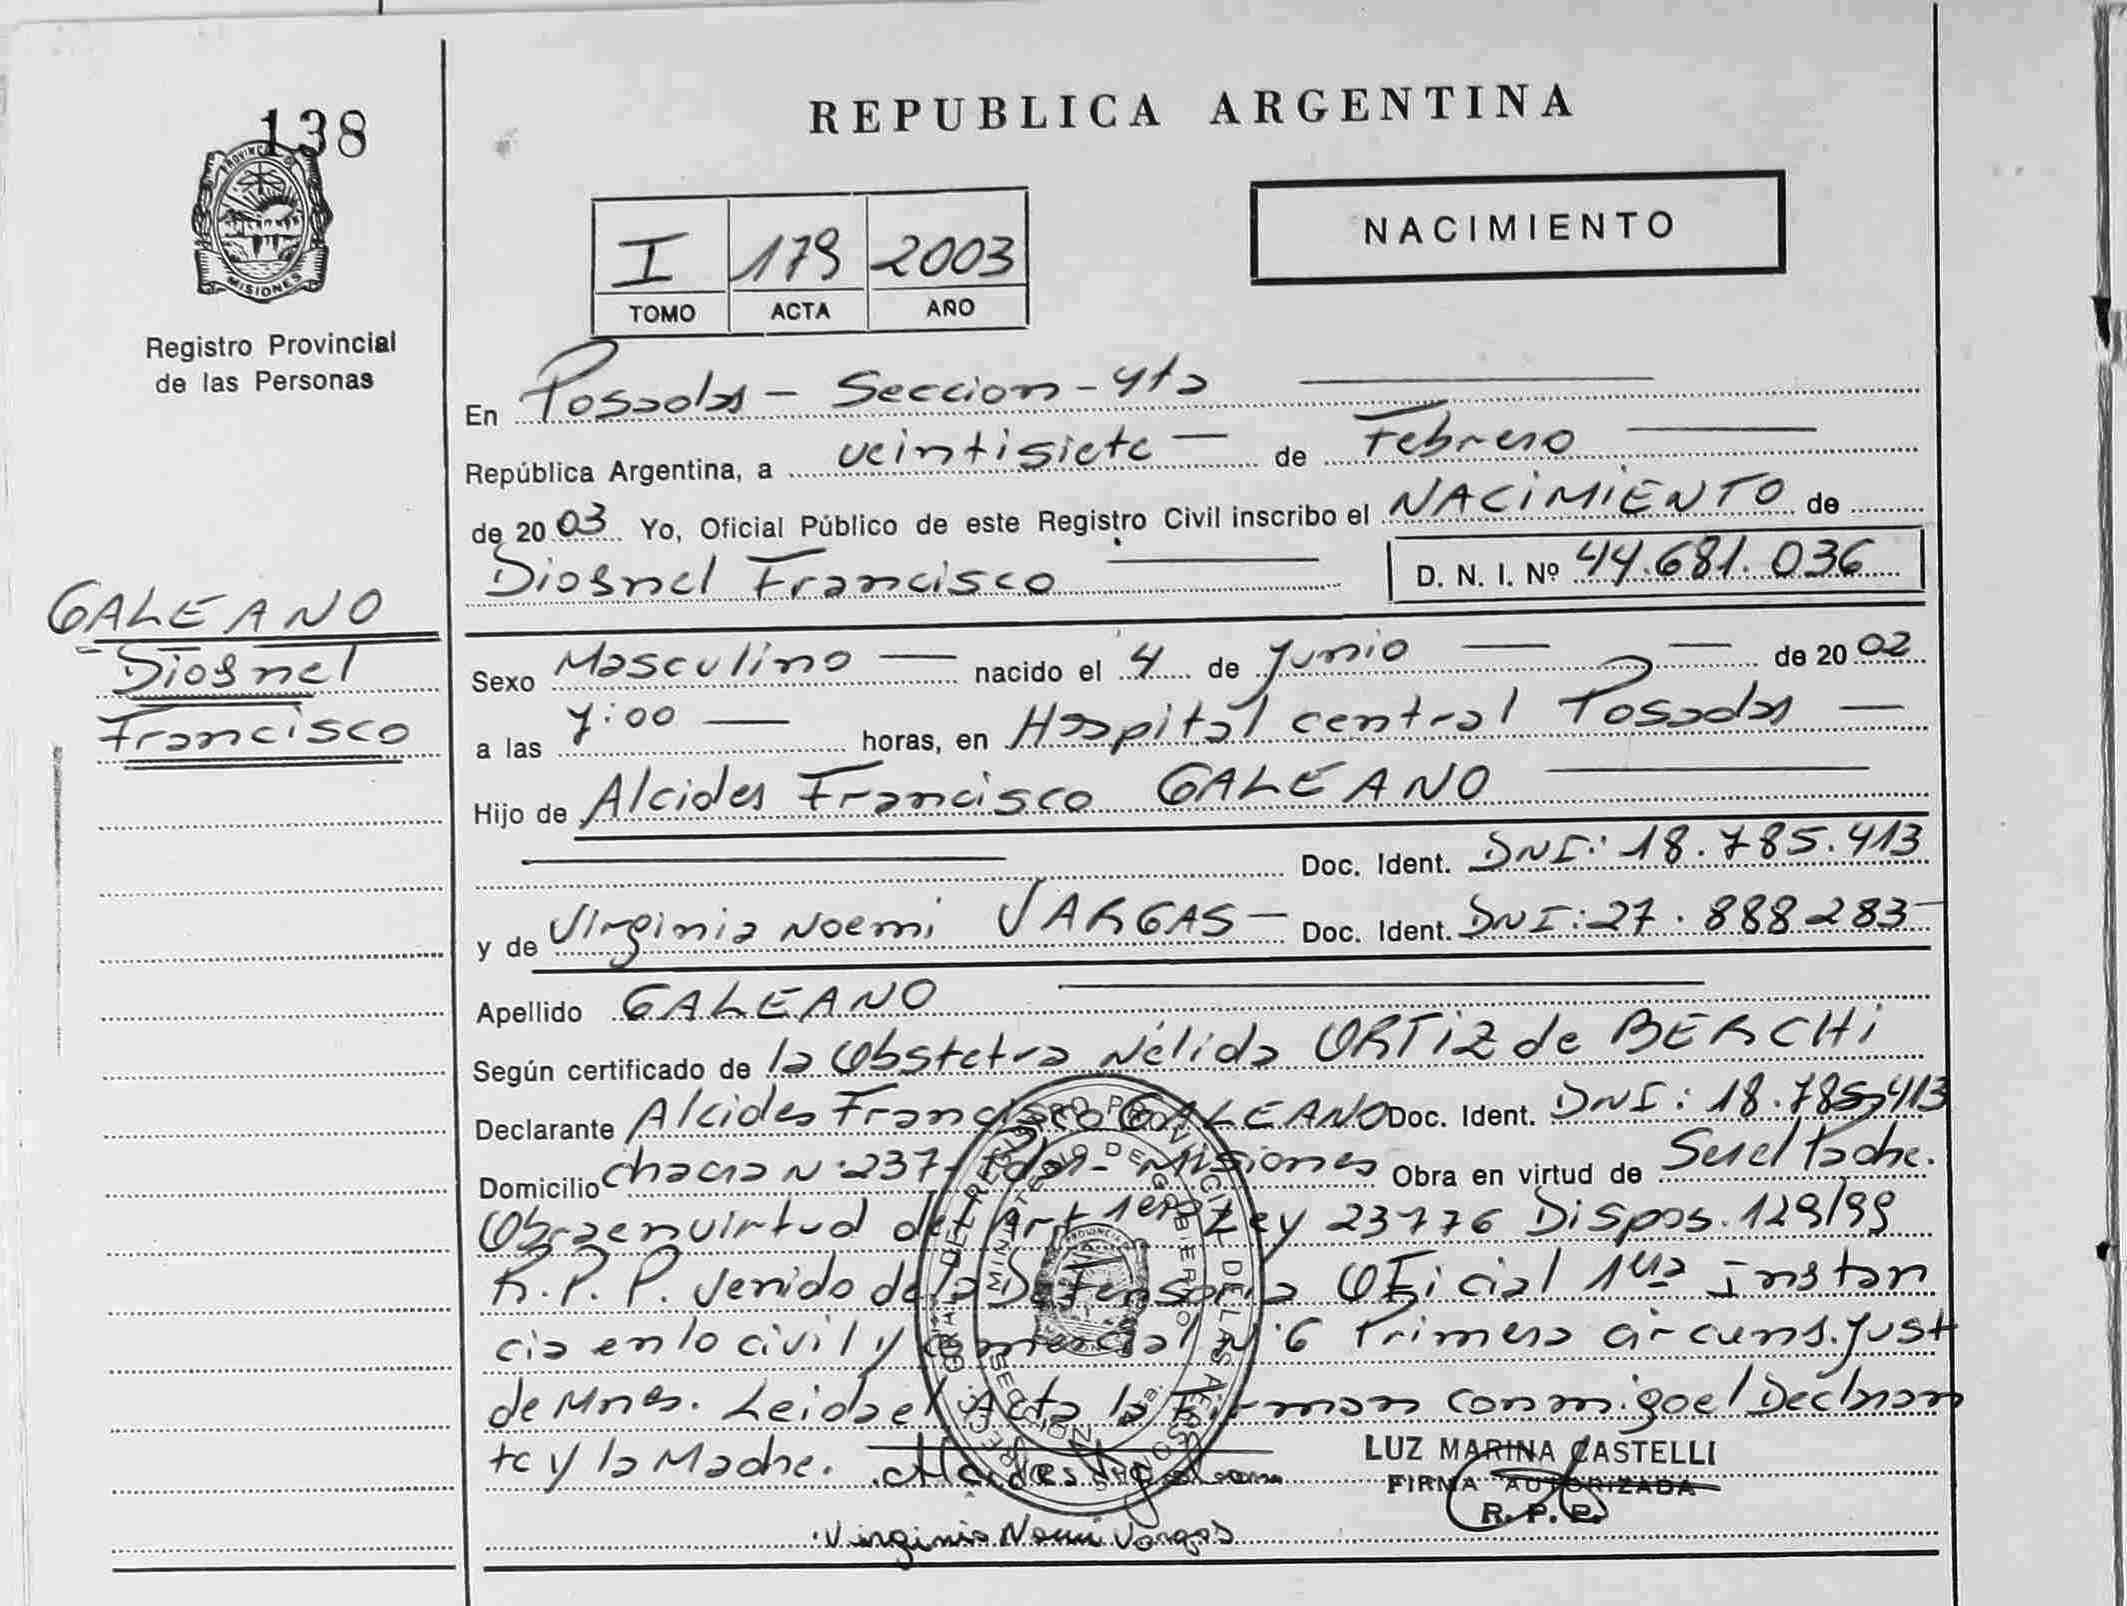 138
PROVINCIA DE
MISIONES
Registro Provincial
de las Personas
REPUBLICA ARGENTINA
NACIMIENTO
I 179 2003
TOMO ACTA AÑO
En Posadas - Seccion - 4ta
República Argentina, a veintisiete de Febrero
de 2003 Yo, Oficial Público de este Registro Civil inscribo el NACIMIENTO de
Diosnel Francisco D. N. I. Nº 44.681.036
GALEANO
Diosnel
Francisco
Sexo Masculino nacido el 4 de Junio de 2002
a las 7:00 horas, en Hospital central Posadas
Hijo de Alcides Francisco GALEANO
Doc. Ident. DNI: 18.785.413
y de Virginia Noemi VARGAS Doc. Ident. DNI: 27.888283
Apellido GALEANO
Según certificado de la Obstetra Nélida ORTIZ de BERCHI
Declarante Alcides Francisco GALEANO Doc. Ident. DNI: 18.785.413
Domicilio chacra N°237 - Pdas - Misiones Obra en virtud de Ser el Padre.
Obra en virtud del Art 1ero Ley 23776 Dispos. 129/99
R.P.P. venido de la Defensoria Oficial 1ra Instan
cia en lo civil y comercial N°6 Primera circuns. Just
de Mnes. Leida el Acta la Firman conmigo el Declaran
te y la Madre.
LUZ MARINA CASTELLI
FIRMA AUTORIZADA
R. P. P.
Virginia Noemi Vargas